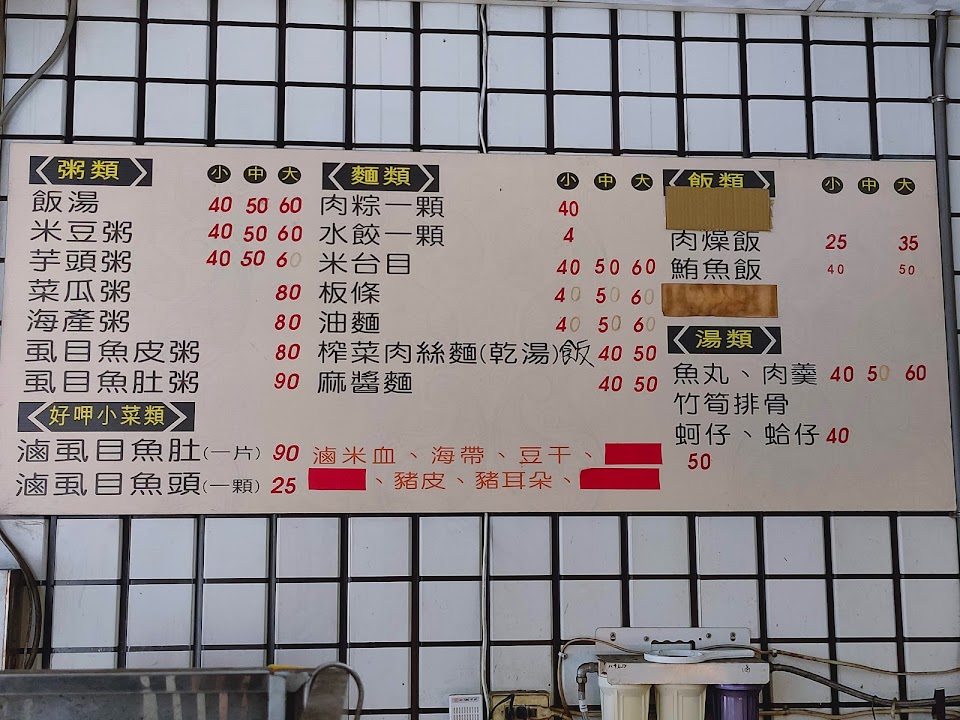 粥類 小 中 大
飯湯 40 50 60
米豆粥 40 50 60
芋頭粥 40 50 60
菜瓜粥 80
海產粥 80
虱目魚皮粥 80
虱目魚肚粥 90
好呷小菜類
滷虱目魚肚(一片) 90
滷虱目魚頭(一顆) 25
麵類 小 中 大
肉粽一顆 40
水餃一顆 4
米台目 40 50 60
板條 40 50 60
油麵 40 50 60
榨菜肉絲麵(乾湯)飯 40 50
麻醬麵 40 50
滷米血、海帶、豆干、
、豬皮、豬耳朵、
飯類 小 中 大
肉燥飯 25 35
鮪魚飯 40 50
湯類
魚丸、肉羹 40 50 60
竹筍排骨
蚵仔、蛤仔 40
50